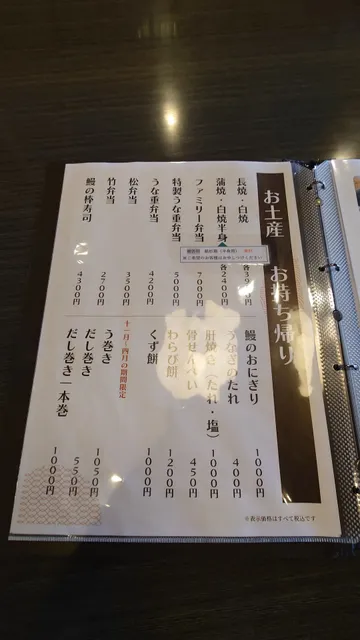 お土産 お持ち帰り
長焼・白焼
蒲焼・白焼半身 各2400円
ファミリー弁当 7000円
特製うな重弁当 5000円
うな重弁当 4200円
松弁当 3500円
竹弁当 2700円
鰻の棒寿司 4300円
鰻のおにぎり 1000円
うなぎのたれ 400円
肝焼き（たれ・塩） 1000円
骨せんべい 450円
わらび餅 1200円
くず餅 1000円
十一月～四月の期間限定
う巻き 1050円
だし巻き 550円
だし巻き一本巻 1000円
※表示価格はすべて税込です